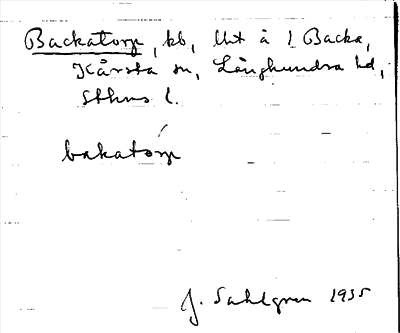 Backatorp, kb, Unt å 1 Backa,
Kårsta sn, Långhundra hd,
Sthms l.
bakatórp
J. Sahlgren 1935